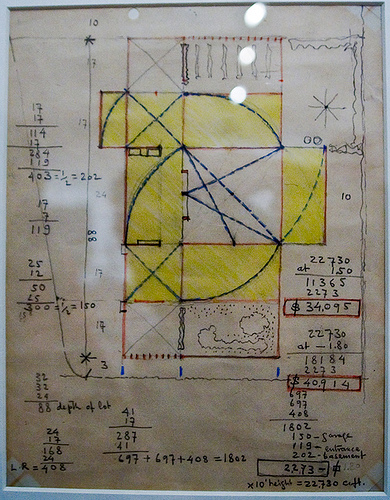 10
17
17
17
114
17
284
119
403 = 1/2 = 202
17
24
17
7
119
10
88
25
12
50
25
300 = 1/2 = 150
17
17
3
22730
at 1.50
11365
2273
$ 34,095
22730
at 1.80
18184
2273
$ 40,914
32
32
24
88 depth of lot
24
17
168
24
L.R = 408
41
17
287
41
697 + 697 + 408 = 1802
697
697
408
1802
150 - garage
119 - entrance
202 - basement
2273 -
x10' height = 22730 cuft.